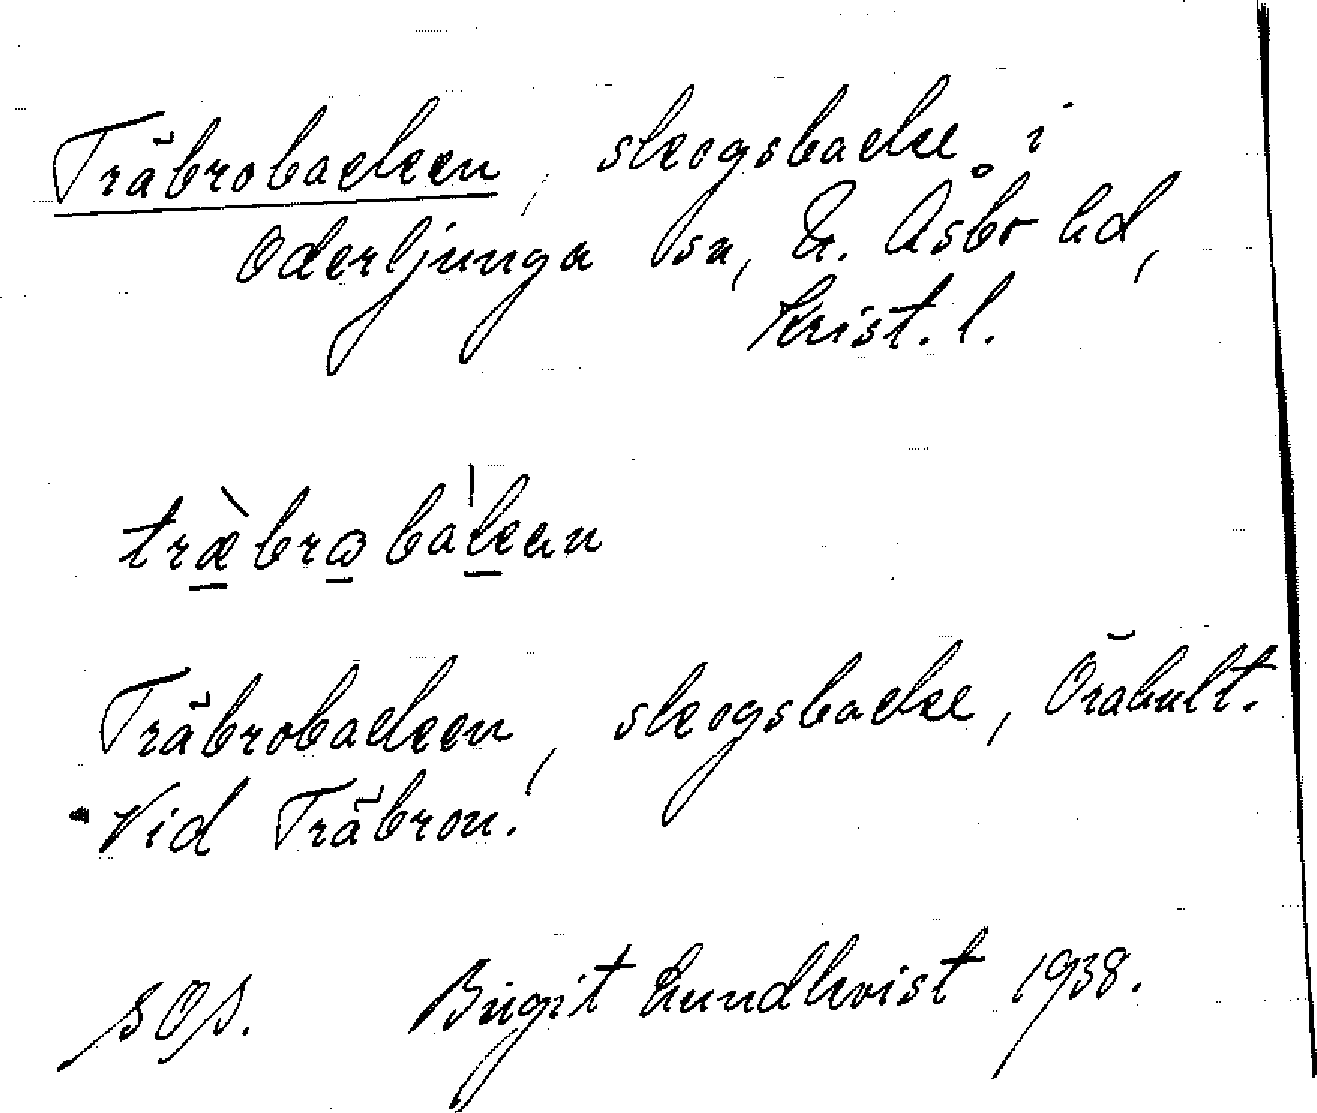 Träbrobacken, skogsbacke i
Oderljunga sn, N. Åsbo hd,
Krist. l.
Träbrobacken, skogsbacke, Örahult.
Vid Träbron.
SOS. Birgit Lundkvist 1938.